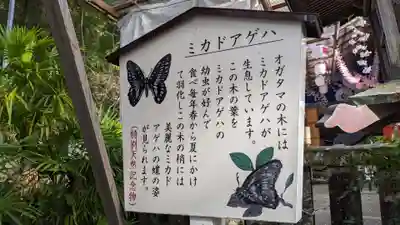 ミカドアゲハ
オガタマの木には
ミカドアゲハが
生息しています。
この木の葉を
ミカドアゲハの
幼虫が好んで
食べ毎年春から夏にかけ
て羽化しこの木の梢には
美麗なミカド
アゲハの蝶の姿
が見られます。
(特別天然記念物)